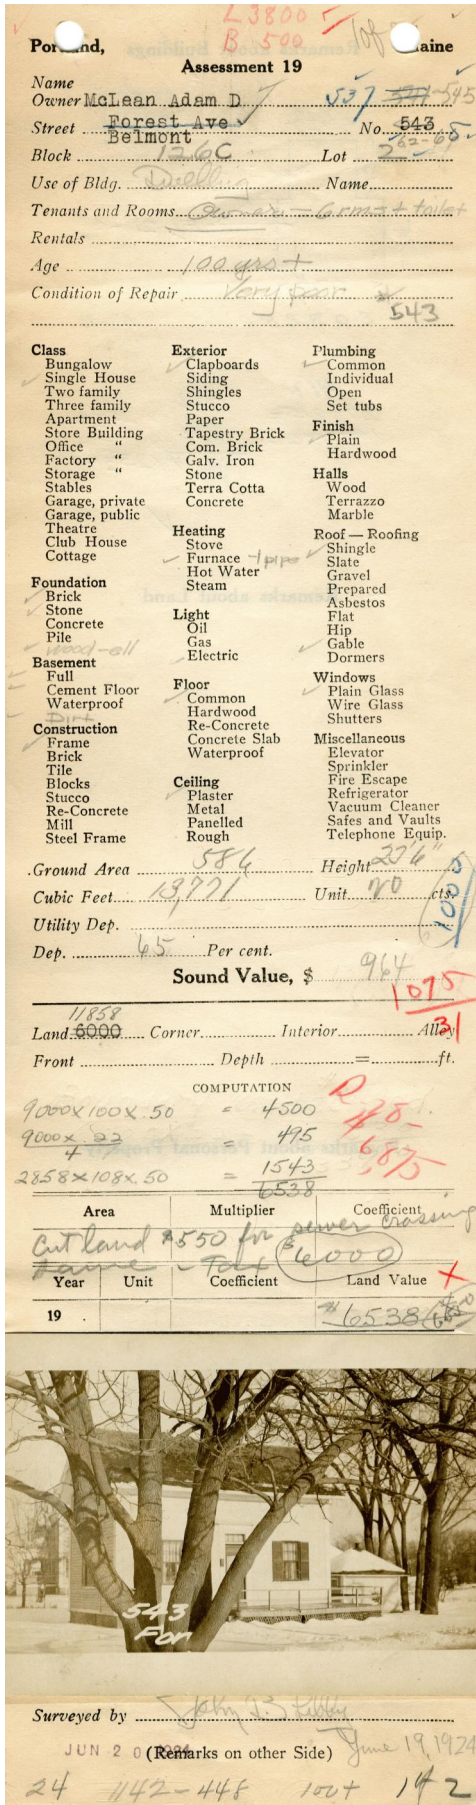 L 3800
B 500
Portland, Maine
Assessment 19
Name
Owner McLean Adam D 537 541-545
Street Forest Ave No. 543
Belmont
Block 126C Lot 2
Use of Bldg. Dwelling Name
Tenants and Rooms Owner - 6 rms + toilet
Rentals
Age 100 yrs +
Condition of Repair Very poor
543
Class
Bungalow
Single House
Two family
Three family
Apartment
Store Building
Office "
Factory "
Storage "
Stables
Garage, private
Garage, public
Theatre
Club House
Cottage
Foundation
Brick
Stone
Concrete
Pile
wood-ell
Basement
Full
Cement Floor
Waterproof
Dirt
Construction
Frame
Brick
Tile
Blocks
Stucco
Re-Concrete
Mill
Steel Frame
Exterior
Clapboards
Siding
Shingles
Stucco
Paper
Tapestry Brick
Com. Brick
Galv. Iron
Stone
Terra Cotta
Concrete
Heating
Stove
Furnace -1 pipe
Hot Water
Steam
Light
Oil
Gas
Electric
Floor
Common
Hardwood
Re-Concrete
Concrete Slab
Waterproof
Ceiling
Plaster
Metal
Panelled
Rough
Plumbing
Common
Individual
Open
Set tubs
Finish
Plain
Hardwood
Halls
Wood
Terrazzo
Marble
Roof — Roofing
Shingle
Slate
Gravel
Prepared
Asbestos
Flat
Hip
Gable
Dormers
Windows
Plain Glass
Wire Glass
Shutters
Miscellaneous
Elevator
Sprinkler
Fire Escape
Refrigerator
Vacuum Cleaner
Safes and Vaults
Telephone Equip.
Ground Area 586 Height 23'6"
Cubic Feet 13,771 Unit 20 cts.
1000
Utility Dep.
Dep. 65 Per cent.
Sound Value, $ 964
1075
31
11858
Land 6000 Corner Interior Alley
Front Depth = ft.
COMPUTATION
9000 x 100 x .50 = 4500
9000 x .22 = 495
4
2858 x 108 x .50 = 1543
6538
6875
Area Multiplier Coefficient
Cut land $550 for sewer crossing
same - Tax $6000
Year Unit Coefficient Land Value X
19 6538
543
For
Surveyed by John J. Libby
JUN 20 1924 (Remarks on other Side) June 19, 1924
24 1142-448 100+ 142